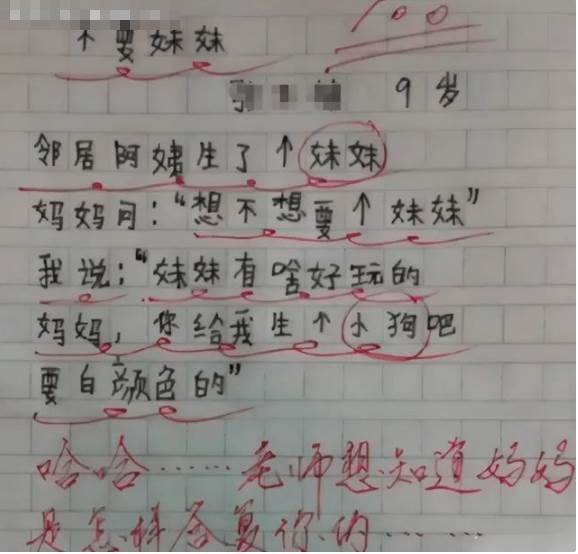 不要妹妹
100
9岁
邻居阿姨生了个妹妹
妈妈问：“想不想要个妹妹”
我说：“妹妹有啥好玩的
妈妈，你给我生个小狗吧
要白颜色的”
哈哈……老师想知道妈妈
是怎样答复你的……